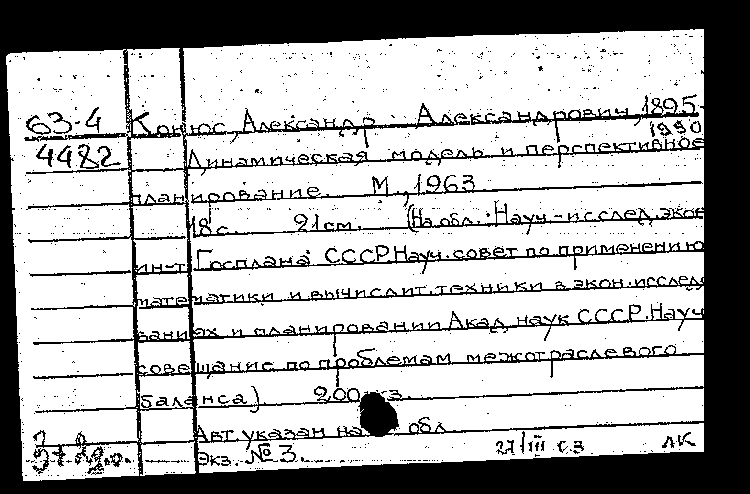 63-4 Конюс, Александр Александрович, 1895-
1990
4482 Динамическая модель и перспективное
планирование. М., 1963
18 с. 21 см. (На обл.: Науч.-исслед. экон
ин-т Госплана СССР. Науч. совет по применению
математики и вычислит. техники в экон. исследо
ваниях и планировании Акад. наук СССР. Науч
совещание по проблемам межотраслевого
баланса). 200 кз.
Авт. указан на обл.
Экз. № 3. 27/III 63 ЛК